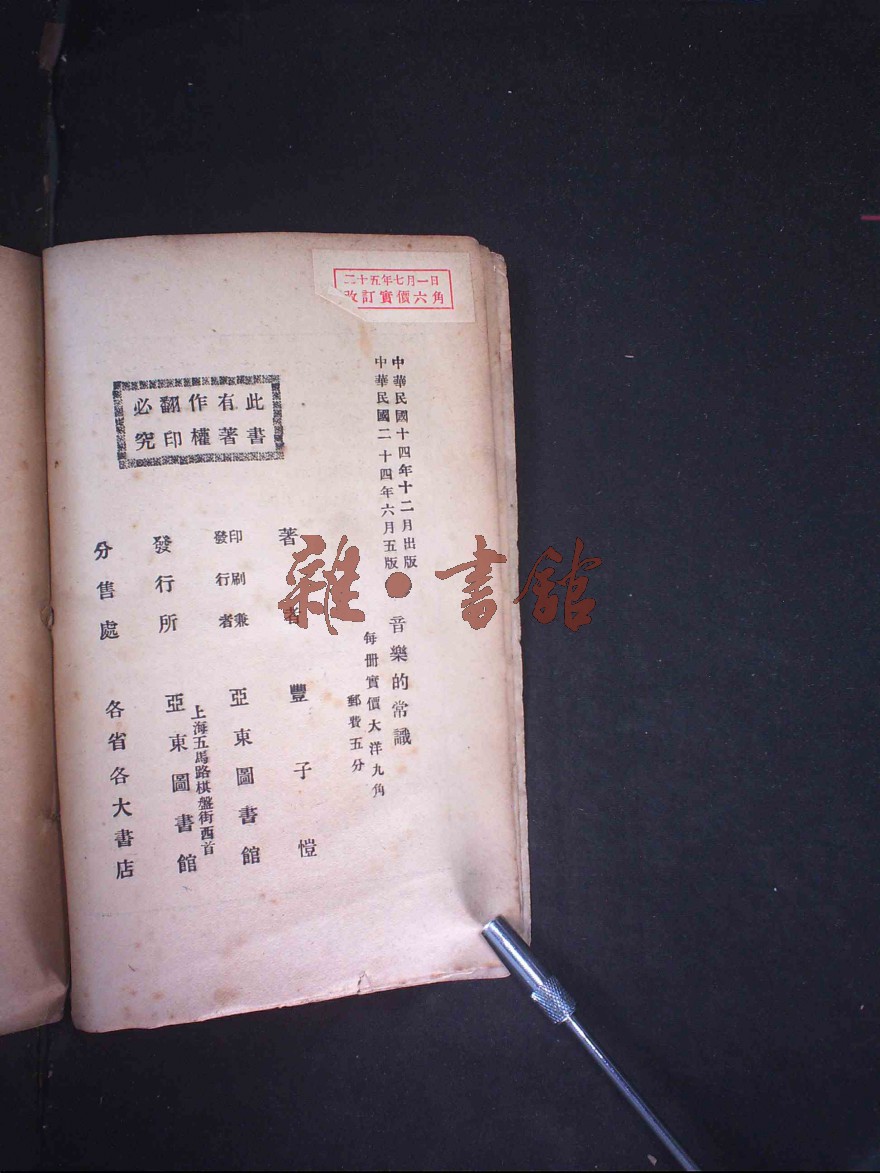 二十五年七月一日
改訂實價六角
中華民國十四年十二月出版
中華民國二十四年六月五版
音樂的常識
每冊實價大洋九角
郵費五分
著者 豐子愷
印刷兼發行者 亞東圖書館
上海五馬路棋盤街西首
發行所 亞東圖書館
分售處 各省各大書店
此書有著作權翻印必究
雜·書館